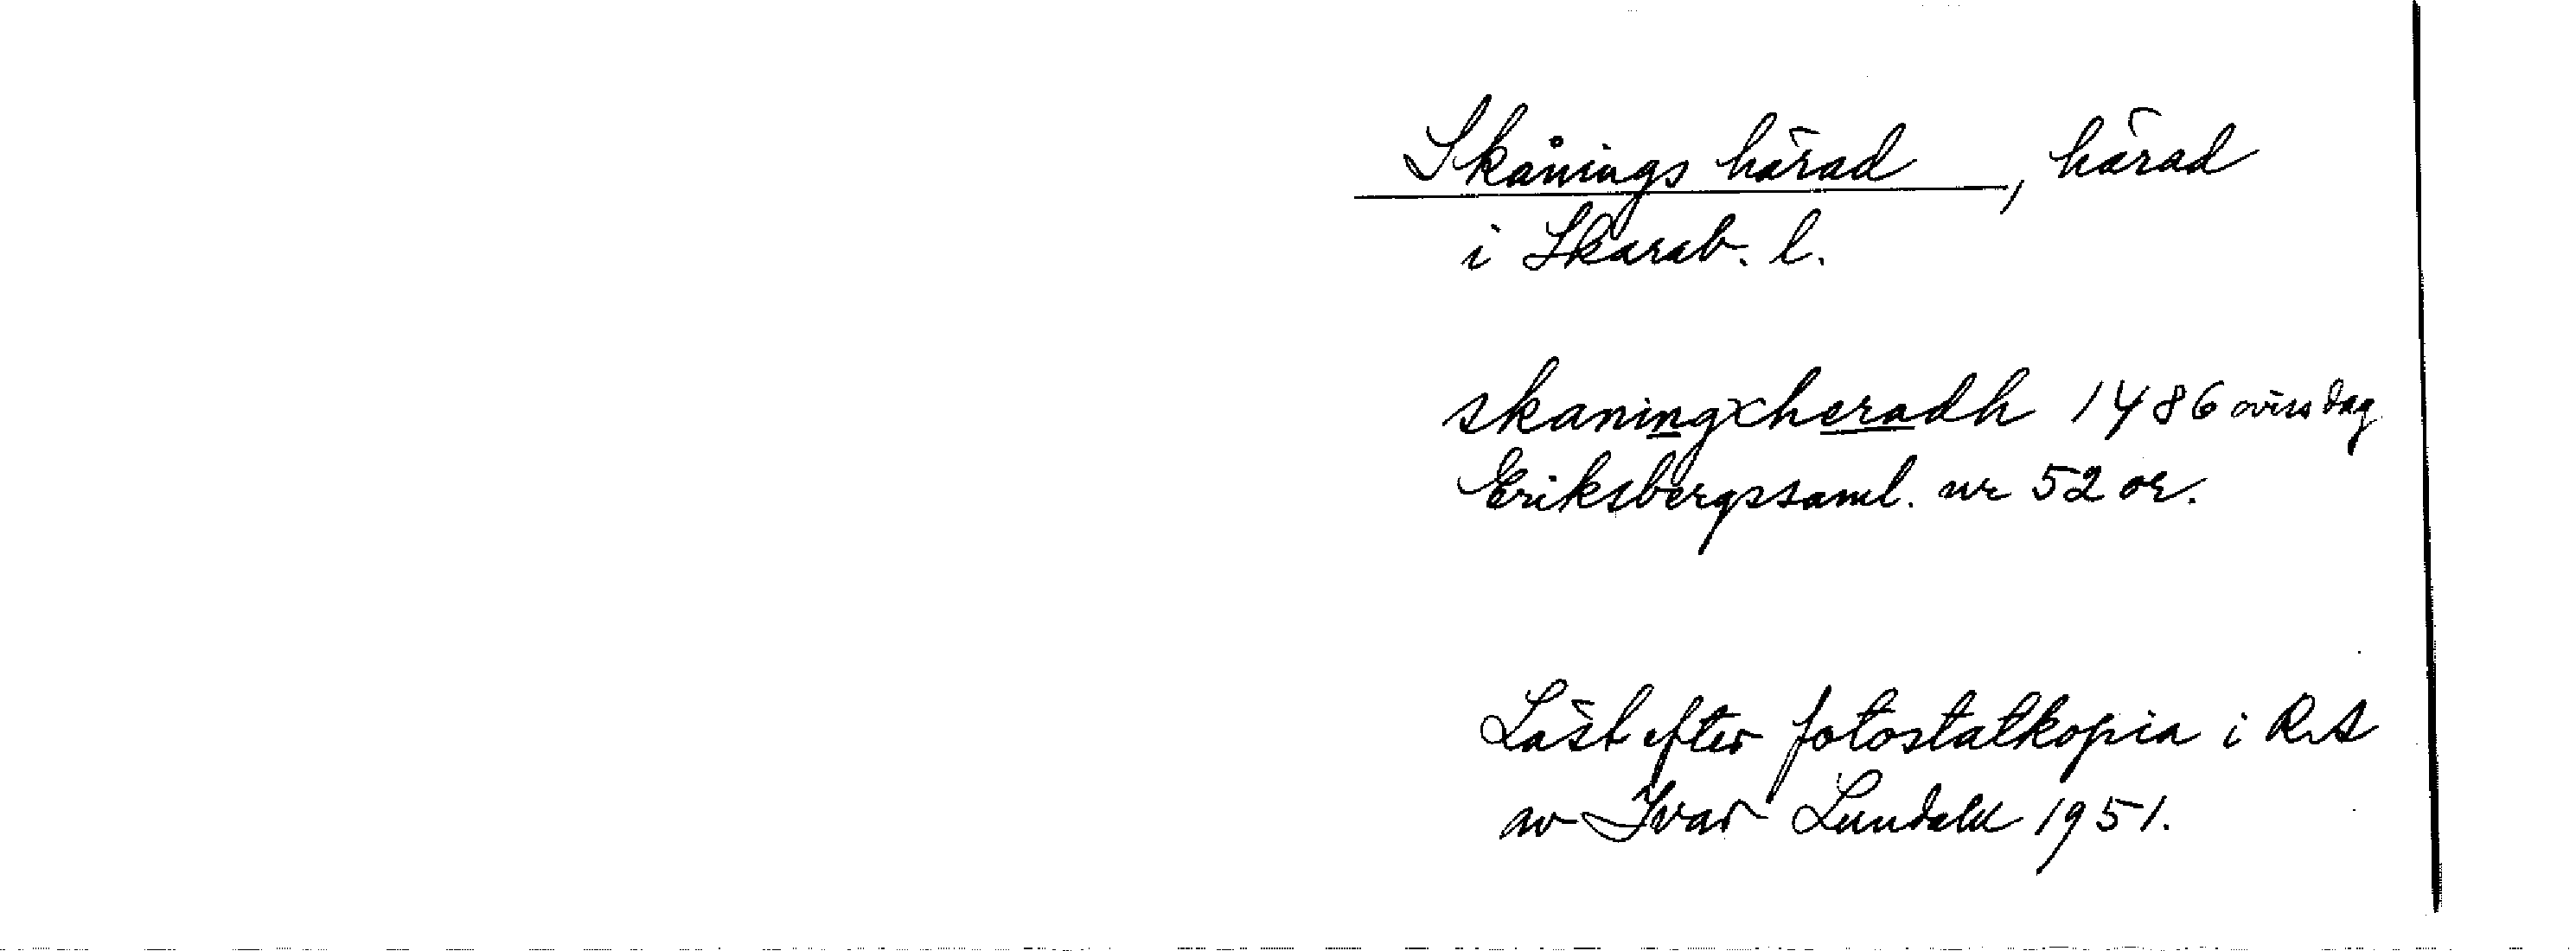 Skånings härad, härad
i Skarab. l.
skaningxheradh 1486 oviss dag
Eriksbergssaml. nr 52 or.
Läst efter fotostatkopia i RA
av Ivar Lundahl 1951.